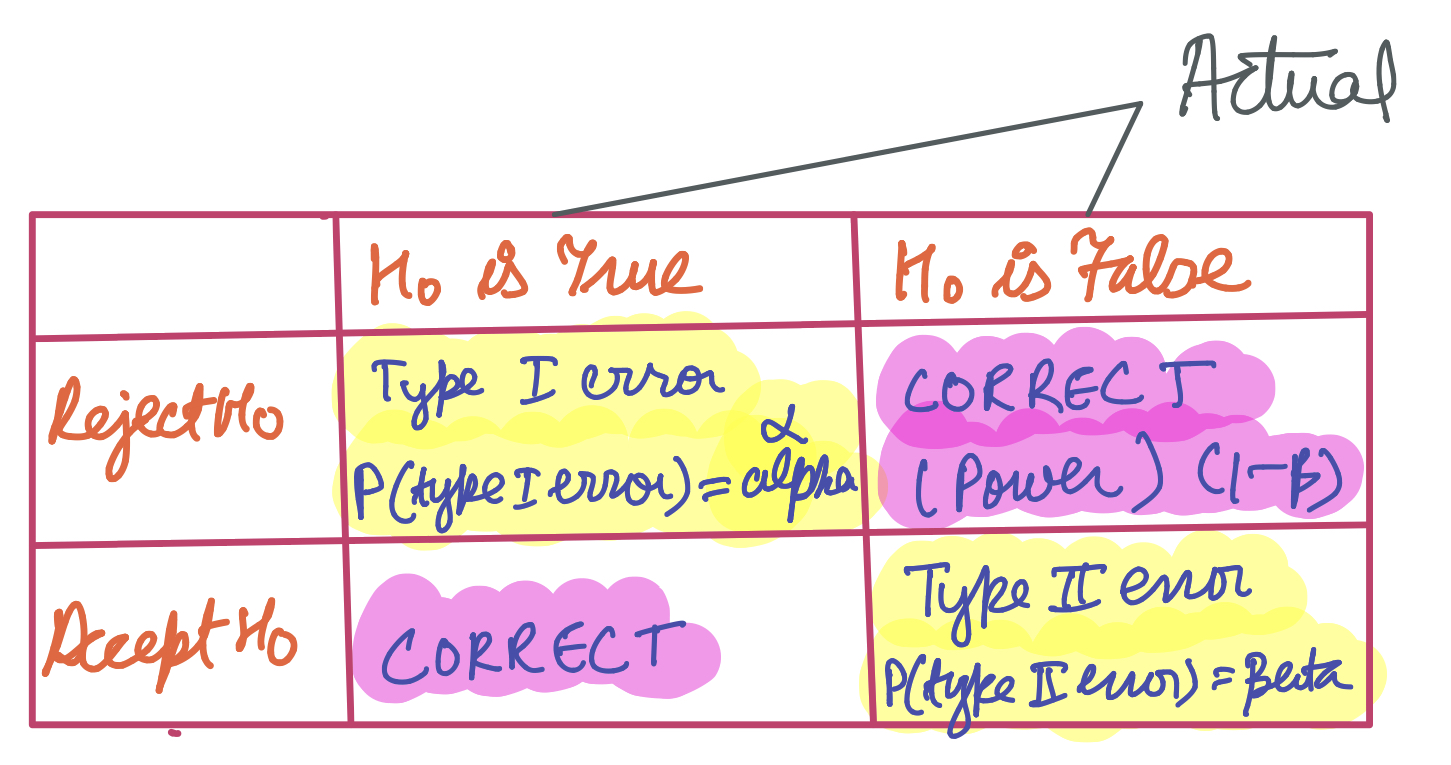 Actual
H₀ is True
H₀ is False
Reject H₀
Type I error
α
P(type I error) = alpha
CORRECT
(Power) (1-β)
Accept H₀
CORRECT
Type II error
P(type II error) = Beta